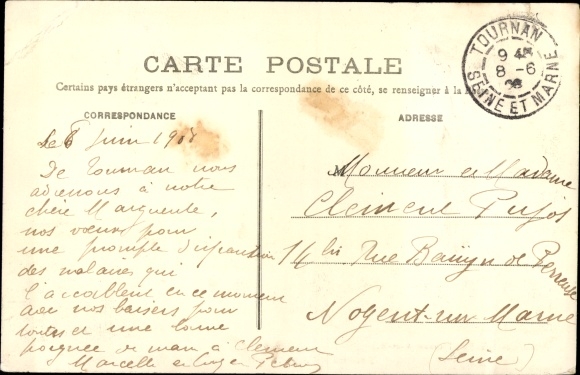 CARTE POSTALE
Certains pays étrangers n'acceptent pas la correspondance de ce côté, se renseigner à la
CORRESPONDANCE
ADRESSE
TOURNAN
8-6
08
SEINE ET MARNE
Juin 1908
De Tournan nous
adressons à notre
chère Marguerite,
nos vœux pour
une prompte disparition
des malaises qui
l'accablent en ce moment
avec nos baisers pour
toutes et une bonne
poignée de main à Clément
Marcelle et
Monsieur et Madame
Clément Pujos
14 bis Rue Baüyn de Perreuse
Nogent-sur-Marne
(Seine)